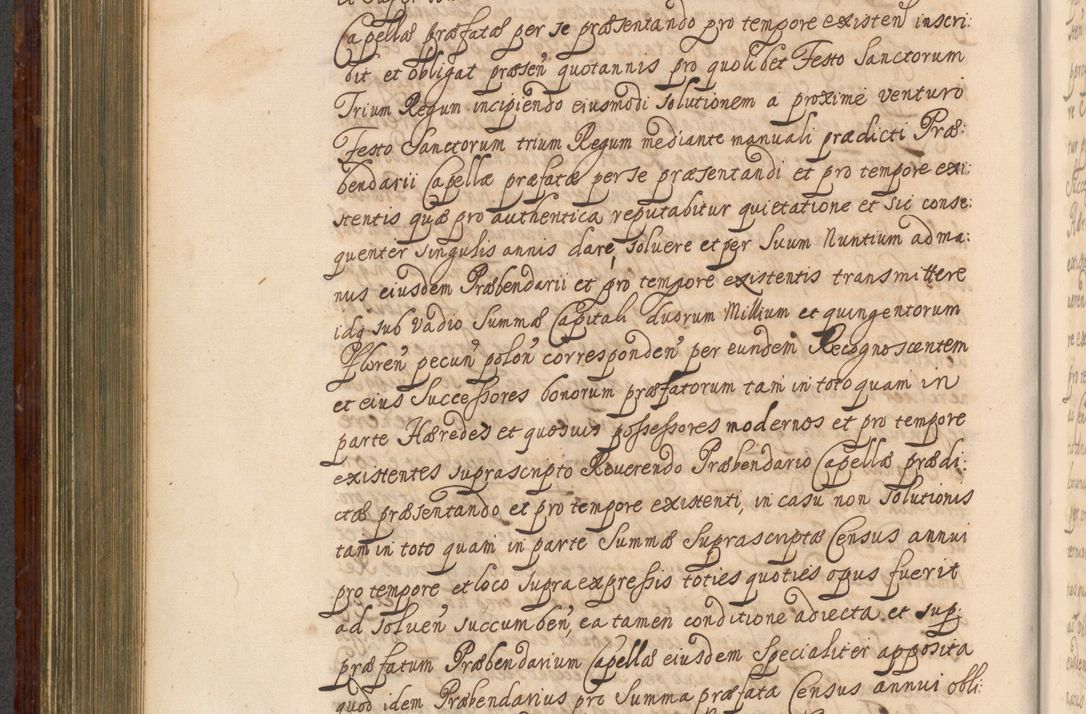 Capellæ præfatæ per se præsentando pro tempore existen̄ inscri:
bit et obligat præsen̄ quotannis pro quolibet Festo Sanctorum
Trium Regum incipiendo eiusmodi solutionem a proximè venturo
Festo Sanctorum trium Regum mediante manuali prædicti Præ:
bendarii Capellæ præfatæ per se præsentandi et pro tempore exi:
stentis quæ pro authentica reputabitur quietatione et sic conse:
quenter singulis annis dare, soluere et per suum Nuntium ad ma:
nus eiusdem Præbendarii et pro tempore existentis transmittere
idq sub vadio Summæ Capitali duorum Millium et quingentorum
Floren̄ pecun̄ polon̄ corresponden̄ per eundem Recognoscentem
et eius Successores bonorum præfatorum tam in toto quam in
parte Hæredes et quosuis possessores modernos et pro tempore
existentes suprascripto Reverendo Præbendario Capellæ prædi:
ctæ præsentando et pro tempore existenti, in casu non solutionis
tam in toto quam in parte Summæ suprascriptæ Census annui
pro tempore et loco supra expressis toties quoties opus fuerit
ad soluen̄ succumben̄, ea tamen conditione adiecta et sup:
præfatum Præbendarium Capellæ eiusdem specialiter apposita
quod idem Præbendarius pro Summa præfata Census annui obli: